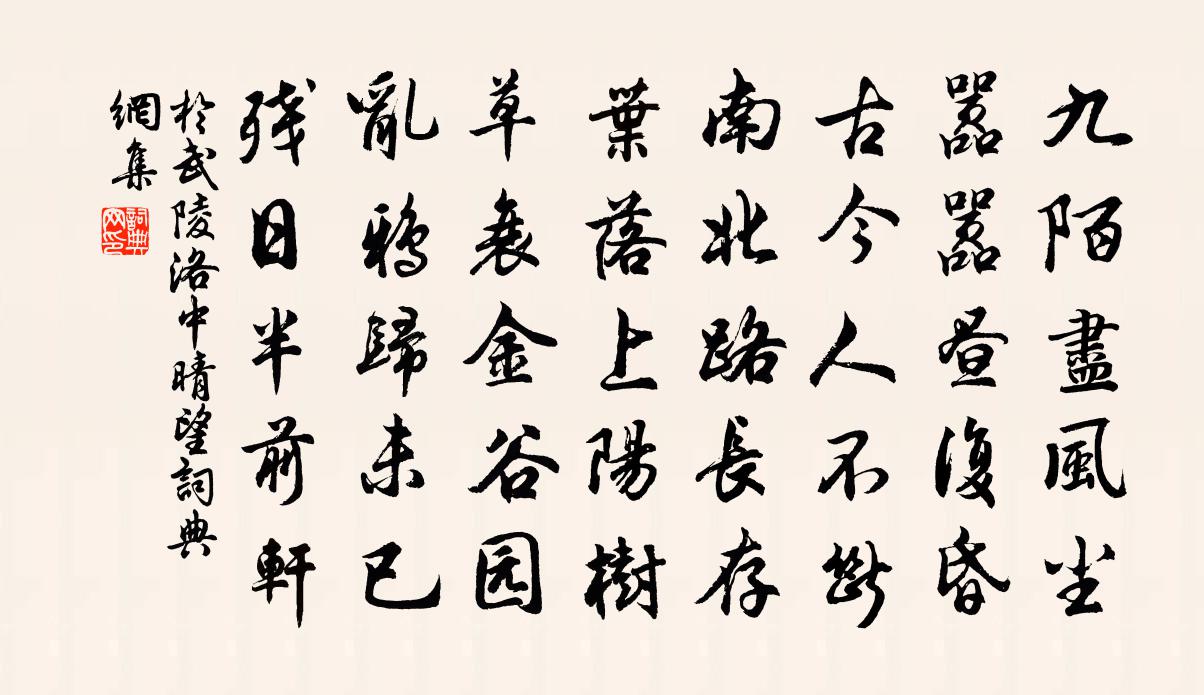 九陌盡風尘
嚣嚣昼復昏
古今人不斷
南北路長存
葉落上陽樹
草衰金谷园
亂鴉歸未已
残日半前軒
於武陵洛中晴望詞典
網集
詞典网印